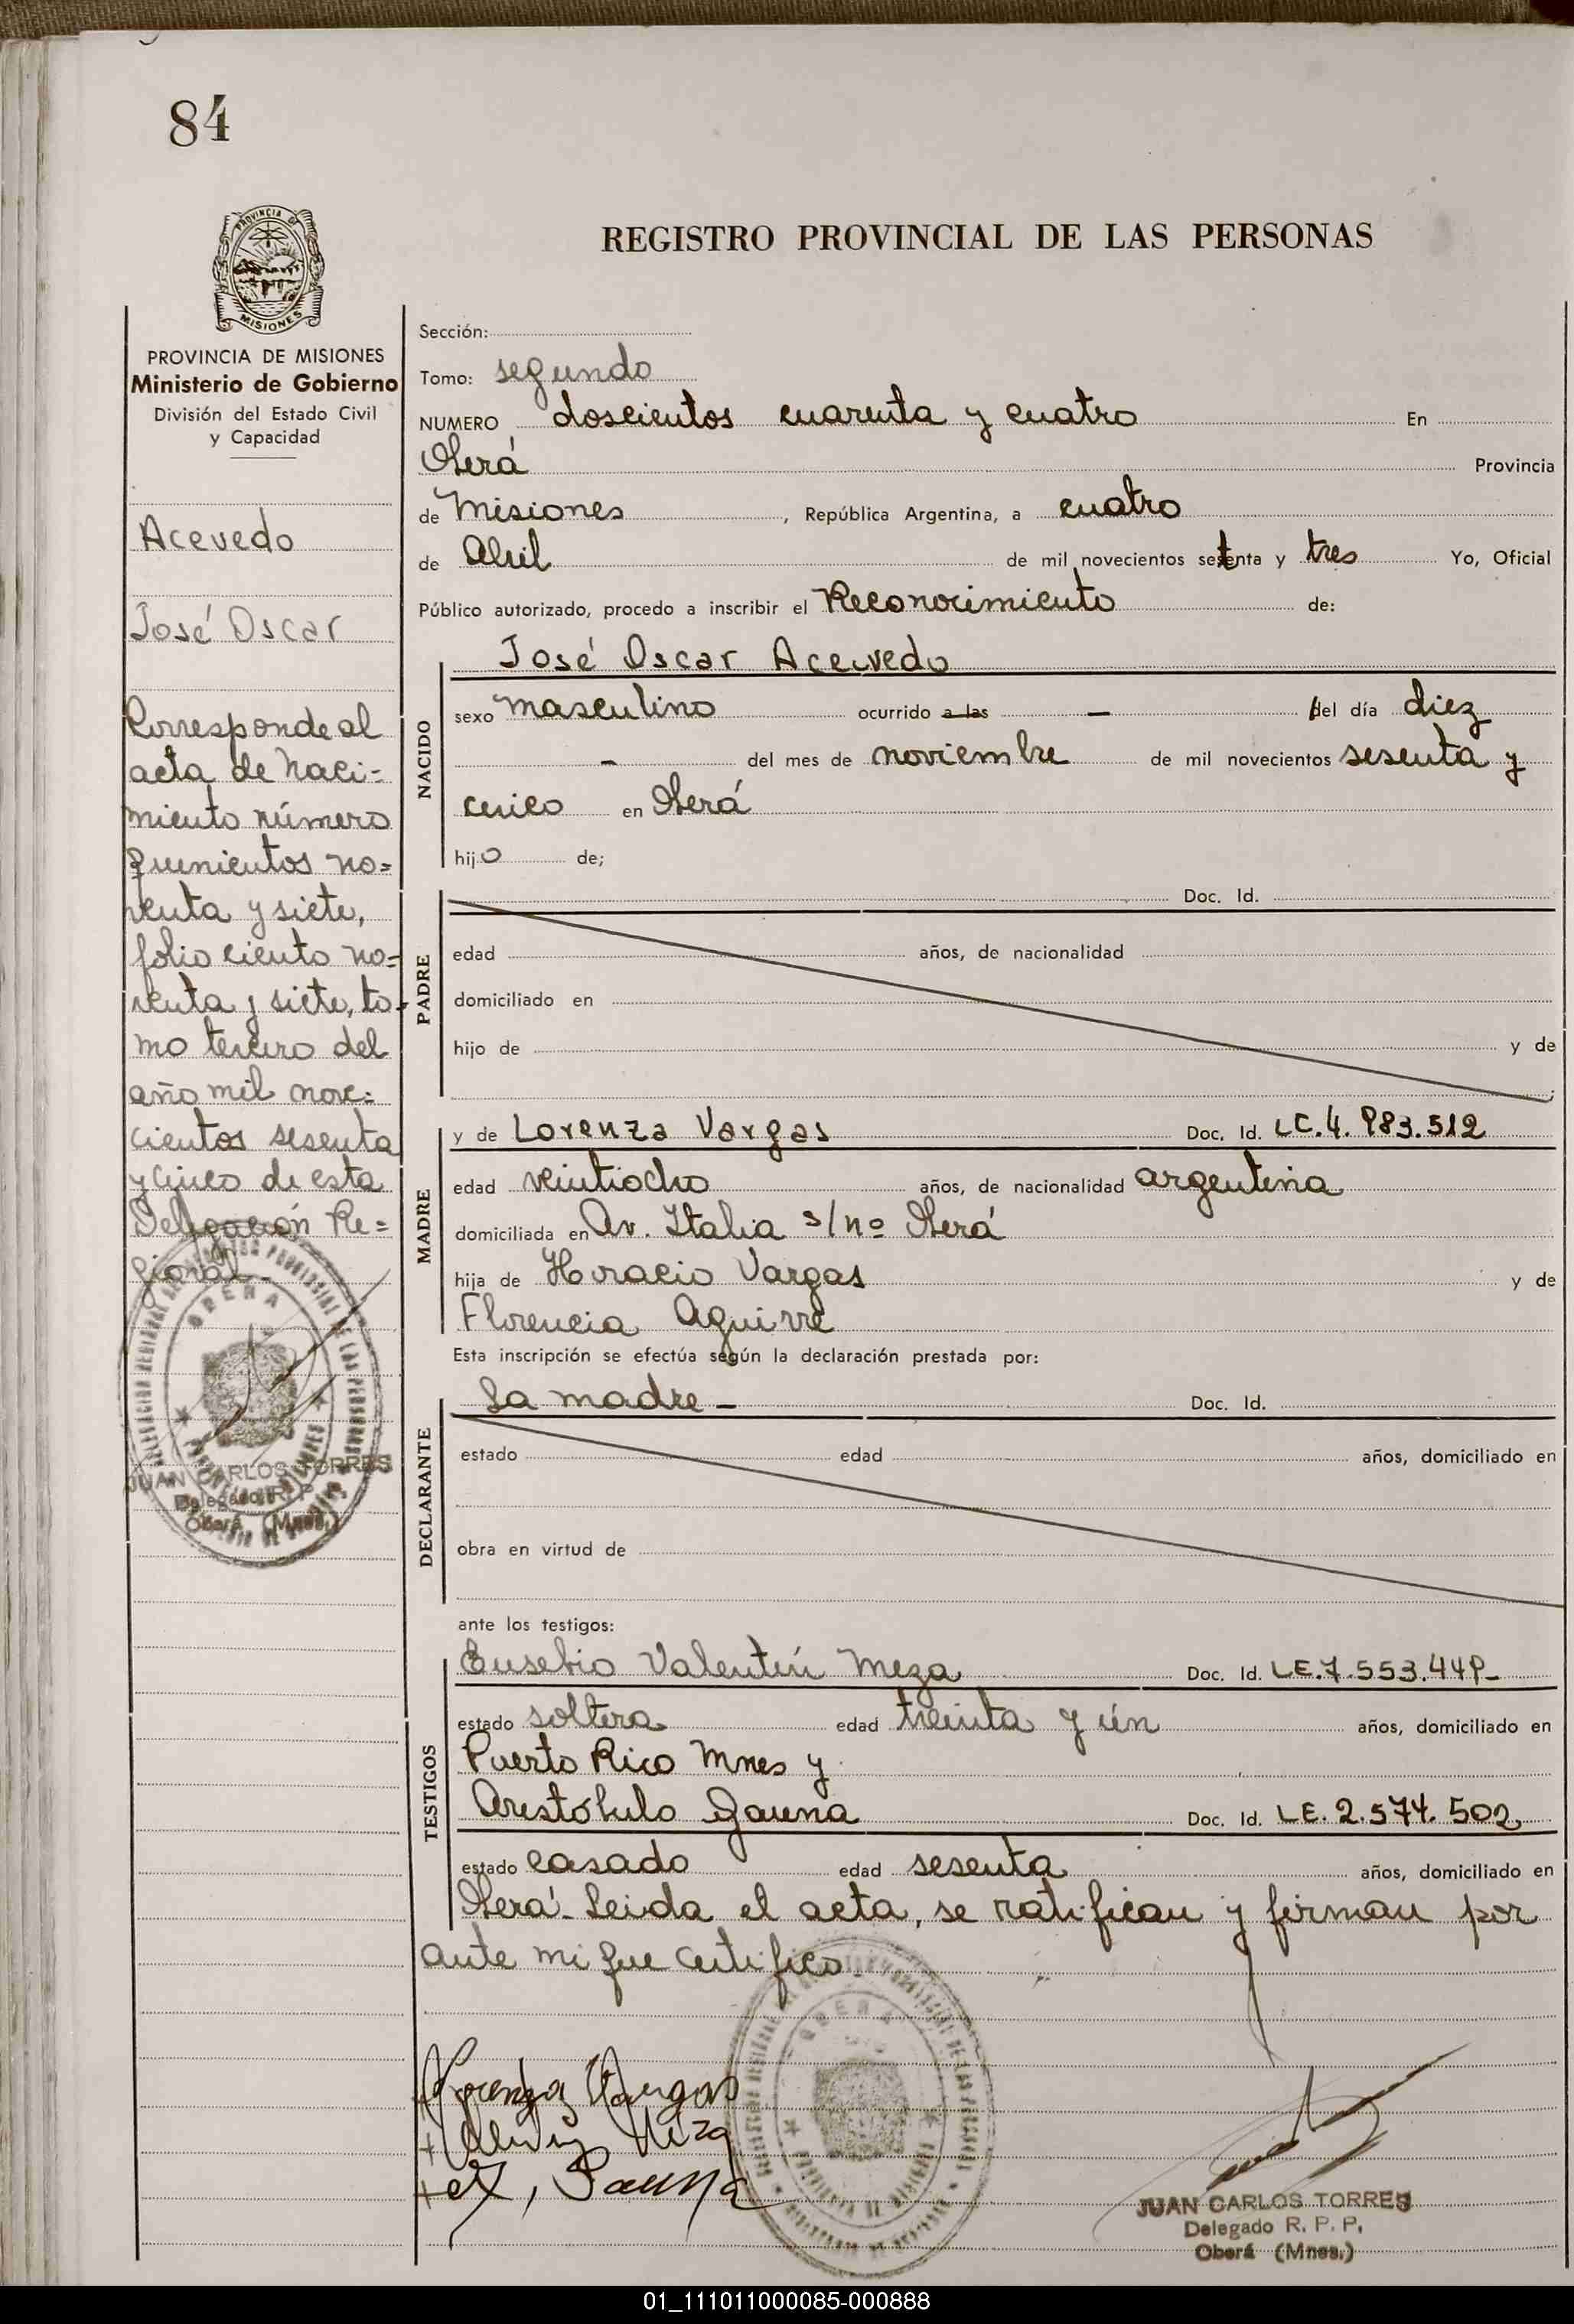 84
PROVINCIA DE
MISIONES
REGISTRO PROVINCIAL DE LAS PERSONAS
PROVINCIA DE MISIONES
Ministerio de Gobierno
División del Estado Civil
y Capacidad
Acevedo
José Oscar
Corresponde al
acta de naci=
miento número
quinientos no=
venta y siete,
folio ciento no=
venta y siete, to-
mo tercero del
año mil nove=
cientos sesenta
y cinco de esta
Delegación Re=
gional-
OBERA
JUAN CARLOS TORRES
Delegado R. P. P.
Oberá (Mnes.)
Sección:
Tomo: segundo
NUMERO doscientos cuarenta y cuatro En
Oberá Provincia
de Misiones , República Argentina, a cuatro
de Abril de mil novecientos setenta y tres Yo, Oficial
Público autorizado, procedo a inscribir el Reconocimiento de:
José Oscar Acevedo
NACIDO
sexo masculino ocurrido a las - del día diez
- del mes de noviembre de mil novecientos sesenta y
cinco en Oberá
hijo de;
PADRE
Doc. Id.
edad años, de nacionalidad
domiciliado en
hijo de y de
MADRE
y de Lorenza Vargas Doc. Id. LC.4.983.512
edad veintiocho años, de nacionalidad argentina
domiciliada en Av. Italia s/nº Oberá
hija de Horacio Vargas y de
Florencia Aguirre
Esta inscripción se efectúa según la declaración prestada por:
DECLARANTE
La madre - Doc. Id.
estado edad años, domiciliado en
obra en virtud de
ante los testigos:
TESTIGOS
Eusebio Valentín Meza Doc. Id. LE.7.553.449-
estado soltera edad treinta y ún años, domiciliado en
Puerto Rico Mnes y
Aristóbulo Gauna Doc. Id. LE. 2.574.502
estado casado edad sesenta años, domiciliado en
Oberá- Leida el acta, se ratifican y firman por
ante mi que certifico
OBERA
Lorenza Vargas
Meza
Gauna
JUAN CARLOS TORRES
Delegado R. P. P.
Oberá (Mnes.)
01_111011000085-000888